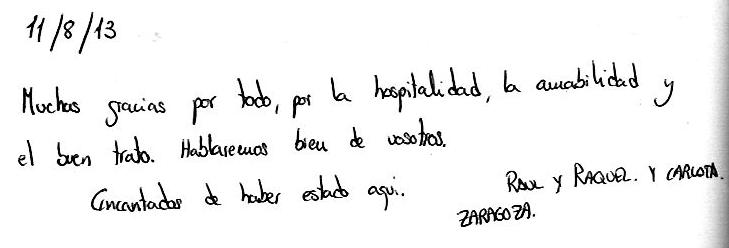 11/8/13
Muchas gracias por todo, por la hospitalidad, la amabilidad y
el buen trato. Hablaremos bien de vosotros.
Encantados de haber estado aqui.
RAUL Y RAQUEL. Y CARLOTA.
ZARAGOZA.